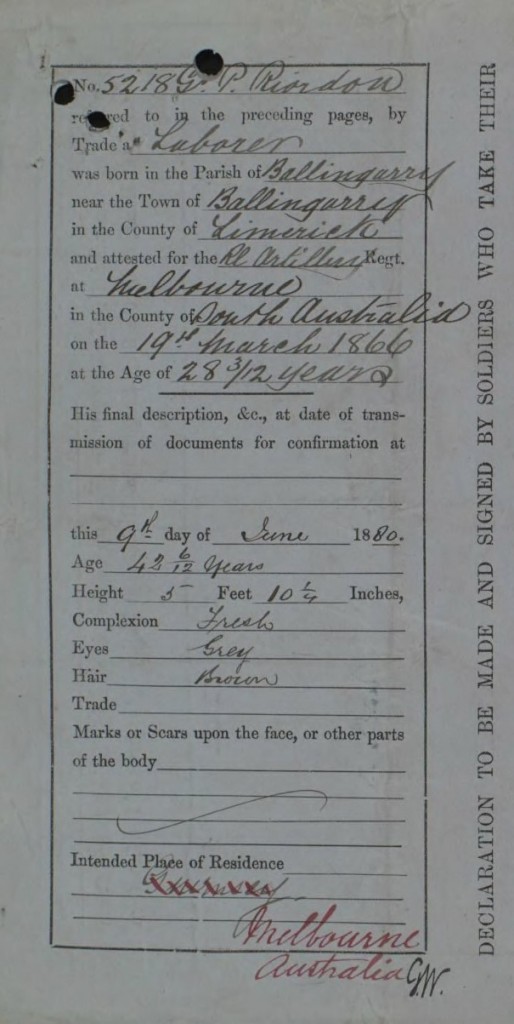 No. 5218 Gr. P. Riordon
referred to in the preceding pages, by
Trade a Laborer
was born in the Parish of Ballingarry
near the Town of Ballingarry
in the County of Limerick
and attested for the Rl Artillery Regt.
at Melbourne
in the County of South Australia
on the 19th March 1866
at the Age of 28 3/12 years
His final description, &c., at date of trans-
mission of documents for confirmation at
this 9th day of June 1880.
Age 42 6/12 Years
Height 5 Feet 10 1/4 Inches,
Complexion Fresh
Eyes Grey
Hair Brown
Trade
Marks or Scars upon the face, or other parts
of the body
Intended Place of Residence
Melbourne
Australia G.W.
DECLARATION TO BE MADE AND SIGNED BY SOLDIERS WHO TAKE THEIR